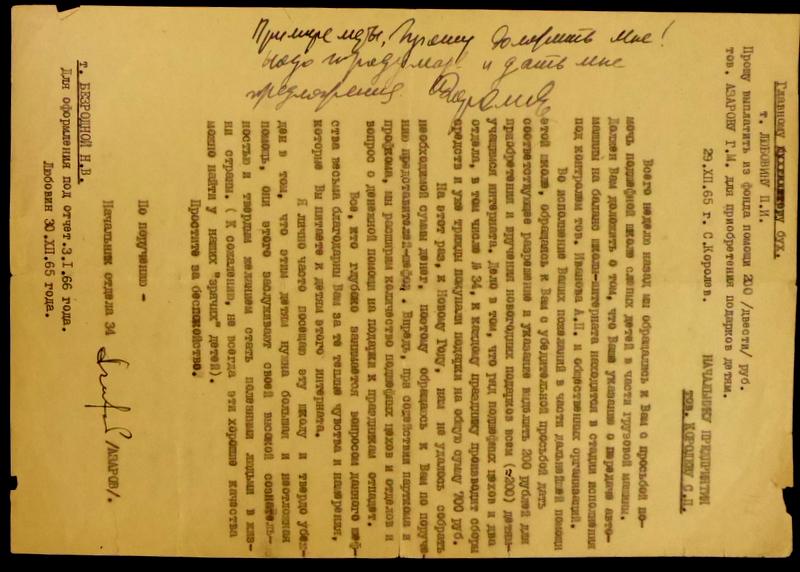 Главному бух.
т. ЛЮБОВИНУ П.И.
Прошу выплатить из фонда помощи 200 /двести/ руб.
тов. АЗАРОВУ Г.М. для приобретения подарков детям.
29.XII.65 г. С.Королев.
НАЧАЛЬНИКУ ПРЕДПРИЯТИЯ
тов. КОРОЛЕВУ С.П.
Всего неделю назад мы обращались к Вам с просьбой по-
мочь подшефной школе слепых детей в части грузовой машины.
Должен Вам доложить о том, что Ваше указание о передаче авто-
машины на баланс школы-интерната находится в стадии исполнения
под контролем тов. Иванова А.П. и общественных организаций.
Во исполнение Ваших пожеланий в части дальнейшей помощи
этой школе, обращаюсь к Вам с убедительной просьбой дать
соответствующее разрешение и указание выделить 200 рублей для
приобретения и вручения новогодних подарков всем (≈200) детям-
учащимся интерната. Дело в том, что ряд подшефных цехов и два
отдела, в том числе № 34, к каждому празднику производят сборы
средств и уже трижды покупали подарки на общую сумму 700 руб.
На этот раз, к Новому Году, нам не удалось собрать
необходимой суммы денег, поэтому обращаюсь к Вам по поруче-
нию представителей-шефов. Впредь, при содействии парткома и
профкома, мы расширим количество подшефных цехов и отделов и
вопрос о денежной помощи на подарки к праздникам отпадет.
Все, кто глубоко занимается вопросом данного шеф-
ства весьма благодарны Вам за те теплые чувства и намерения,
которые Вы питаете к детям этого интерната.
Я лично часто посещаю эту школу и твердо убеж-
ден в том, что этим детям нужна большая и неотложная
помощь, они этого заслуживают своей высокой сознатель-
ностью и твердым желанием стать полезными людьми в жиз-
ни страны. ( К сожалению, не всегда эти хорошие качества
можно найти у наших "зрячих" детей).
Простите за беспокойство.
По поручению -
Начальник отдела 34 /АЗАРОВ/.
т. БЕЗРОДНОЙ Н.В.
Для оформления под отчет.3.I.66 года.
Любовин 30.XII.65 года.
Прошу доложить мне!
Надо и дать мне
предложения.